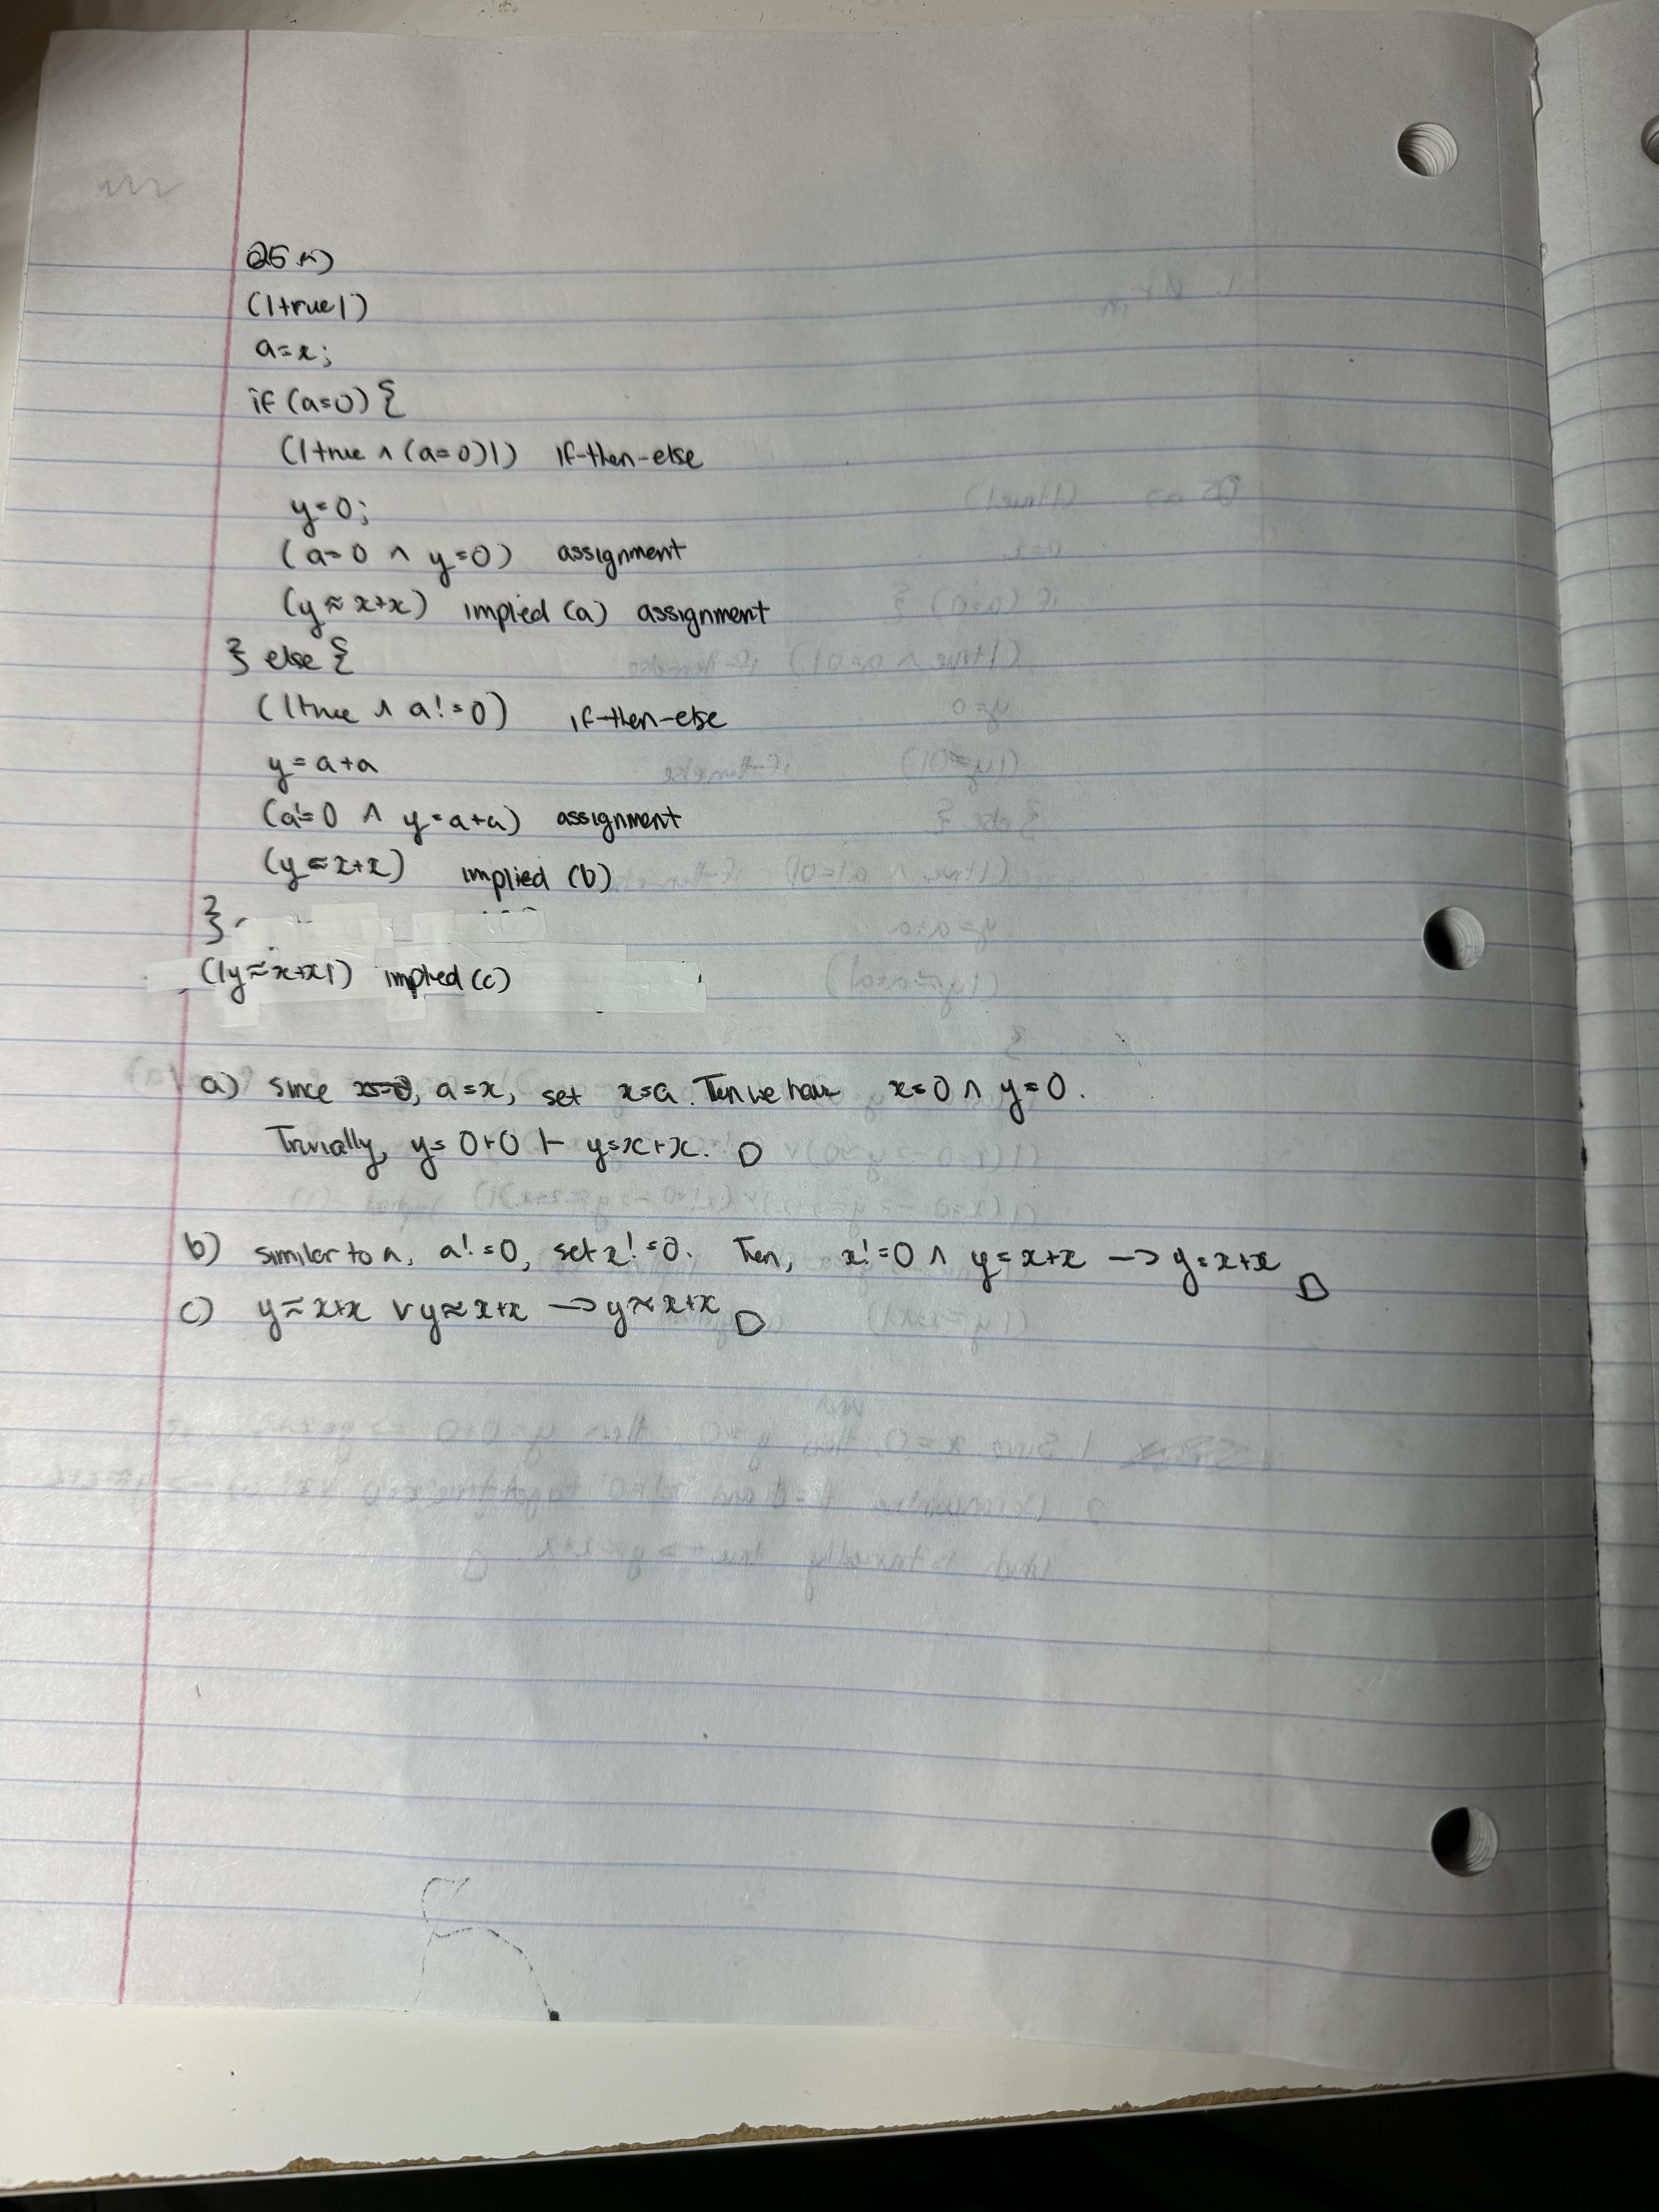 Q5 a)
(|true|)
a=x;
if (a=0) {
(|true ∧ (a=0)|) if-then-else
y=0;
(a=0 ∧ y=0) assignment
(y≈x+x) implied (a) assignment
} else {
(|true ∧ a!=0) if-then-else
y=a+a
(a!=0 ∧ y=a+a) assignment
(y≈x+x) implied (b)
}
(|y≈x+x|) implied (c)
a) Since a=x, set x=a. Then we have x=0 ∧ y=0.
Trivially, y=0+0 ⊢ y=x+x. □
b) similar to a, a!=0, set x!=0. Then, x!=0 ∧ y=x+x → y=x+x □
c) y≈x+x ∨ y≈x+x → y≈x+x □